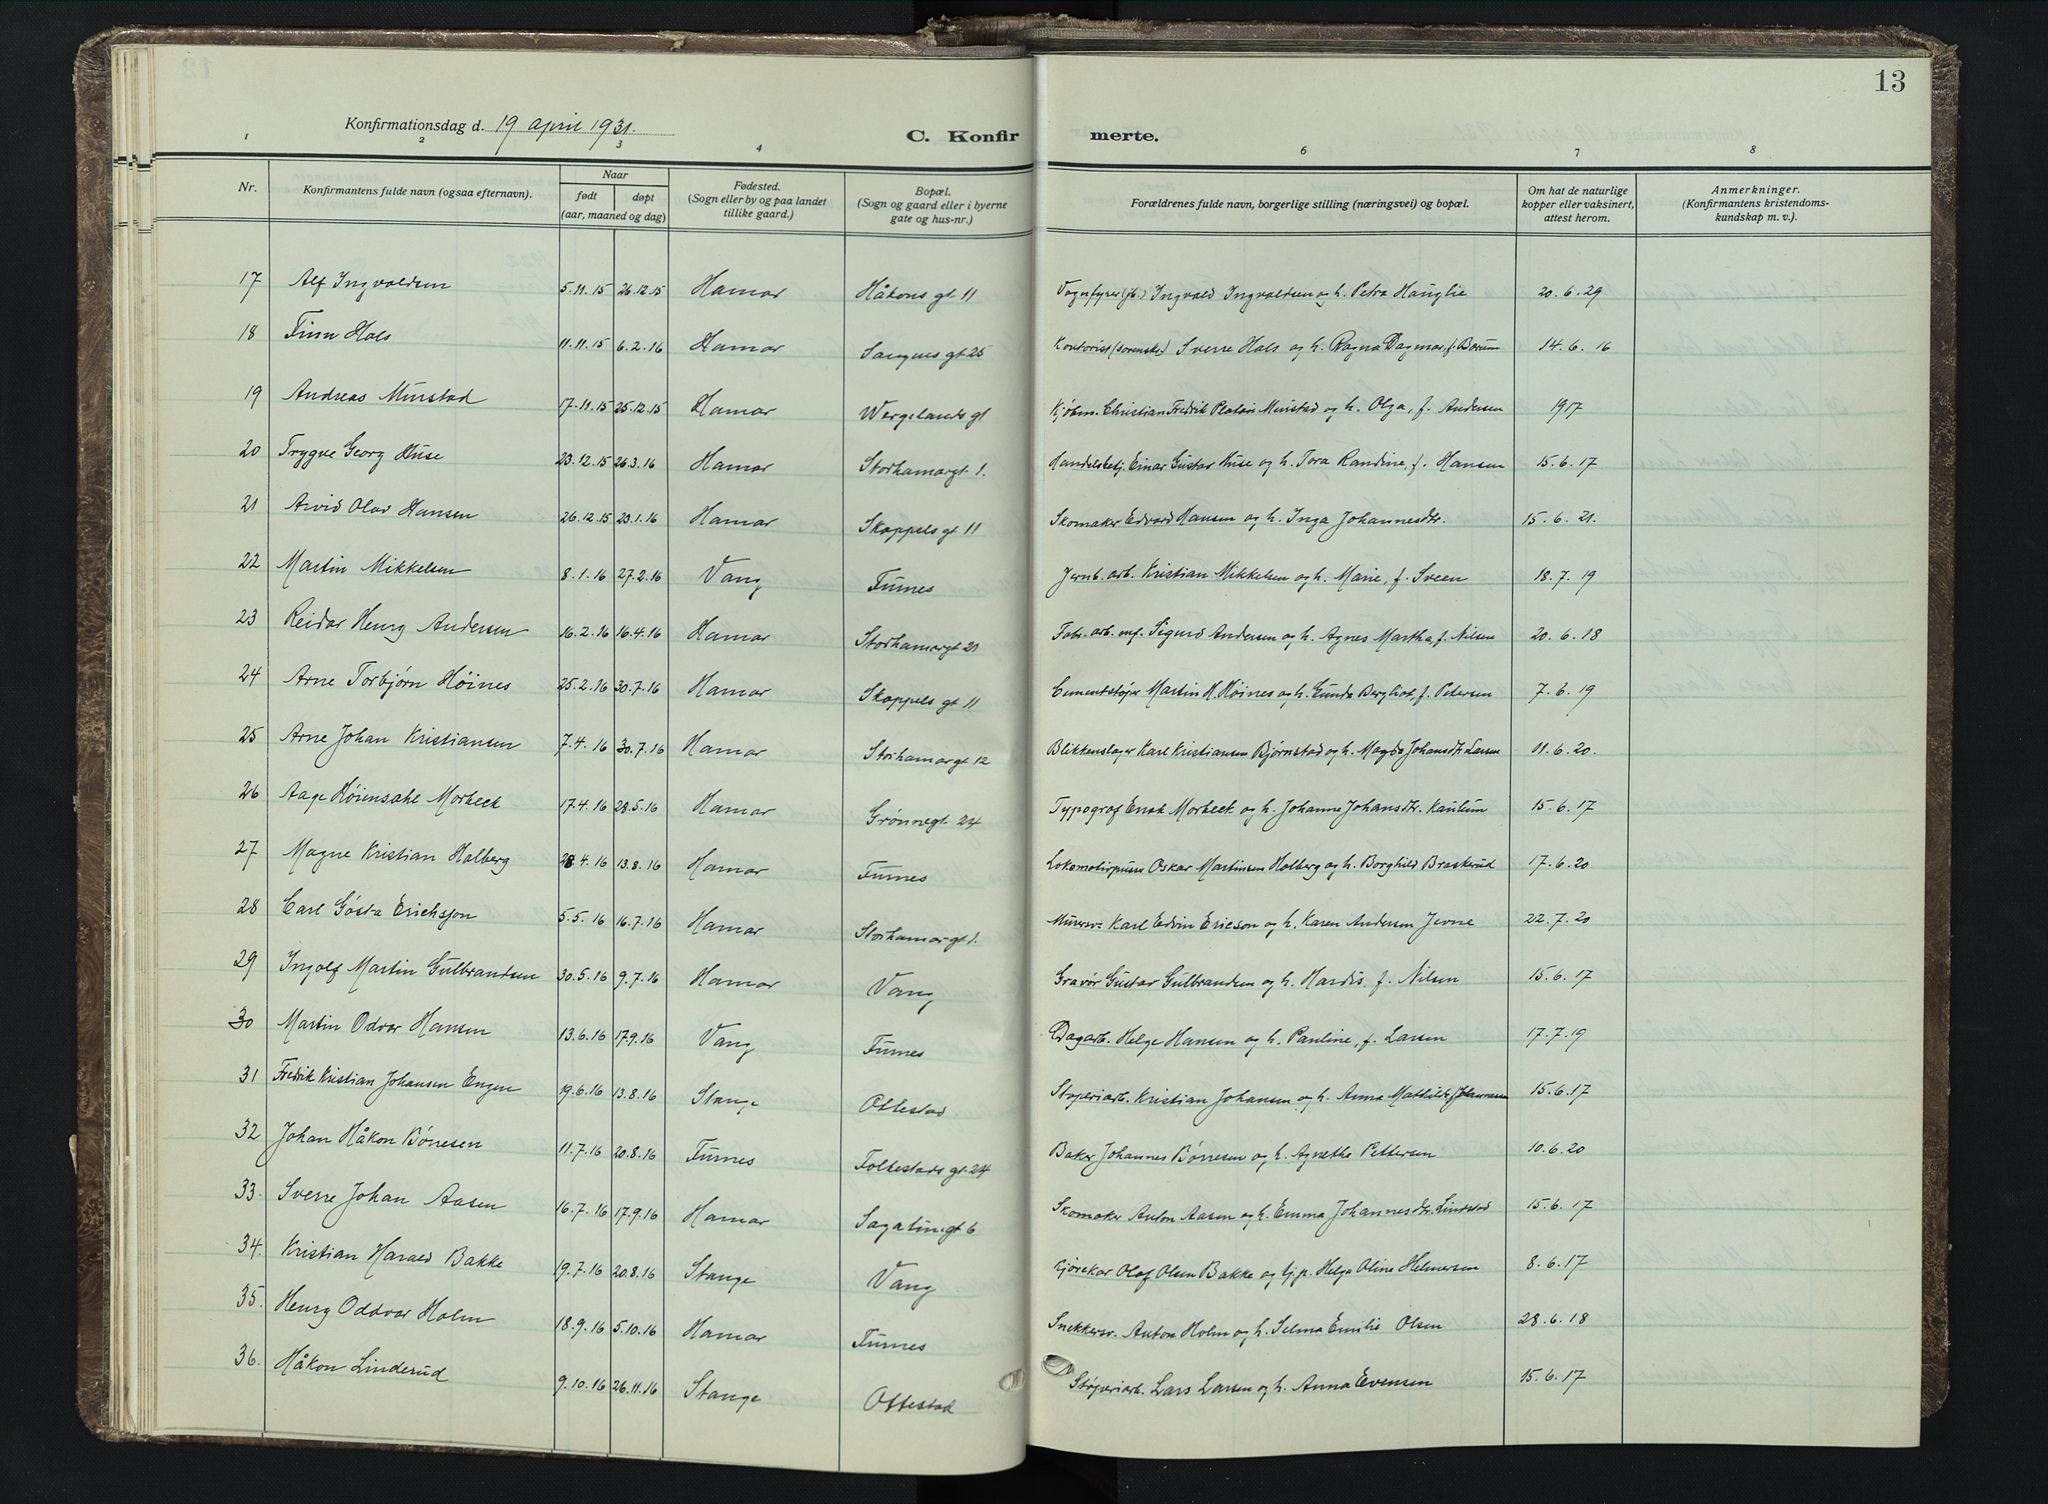 13
Konfirmationsdag d. 19 april 1931.
C. Konfir merte.
1 2 3 4 6 7 8
Nr. Konfirmantens fulde navn (ogsaa efternavn). Naar født døpt (aar, maaned og dag) Fødested. (Sogn eller by og paa landet tillike gaard.) Bopæl. (Sogn og gaard eller i byerne gate og hus-nr.) Forældrenes fulde navn, borgerlige stilling (næringsvei) og bopæl. Om hat de naturlige kopper eller vaksinert, attest herom. Anmerkninger. (Konfirmantens kristendoms-kundskap m. v.).
17 Alf Ingvaldsen 5.11.15 26.12.15 Hamar Håkons gt 11 Ingvald Ingvaldsen og h. Petra Hauglie 20.6.29
18 Finn Hals 11.11.15 6.2.16 Hamar Sangnes gt 25 Kontorist (sorenskr.) Sverre Hals og h. Ragna Dagmar, f. Børum 14.6.16
19 Andreas Minstad 17.11.15 25.12.15 Hamar Wergelands gt Kjøbm. Christian Fredrik Platou Minstad og h. Olga, f. Andersen 1917
20 Trygve Georg Huse 23.12.15 26.3.16 Hamar Storhamargt 1. Handelsbetj. Einar Gustav Huse og h. Tora Randine, f. Hansen 15.6.17
21 Arvid Olav Hansen 26.12.15 23.1.16 Hamar Skappels gt 11 Skomaker Edvard Hansen og h. Inga Johannesdtr. 15.6.21.
22 Martin Mikkelsen 8.1.16 27.2.16 Vang Furnes Jernb. arb. Kristian Mikkelsen og h. Marie, f. Sveen 18.7.19
23 Reidar Henry Andersen 16.2.16 16.4.16 Hamar Storhamargt 21 Fabr. arb. mf. Sigurd Andersen og h. Agnes Martha, f. Nilsen 20.6.18
24 Arne Torbjørn Høines 25.2.16 30.7.16 Hamar Skappels gt 11 Cementstøper Martin H. Høines og h. Gunda Bergliot, f. Petersen 7.6.19
25 Arne Johan Kristiansen 7.4.16 30.7.16 Hamar Storhamargt 12 Blikkenslager Karl Kristiansen Bjørnstad og h. Magda Johansdtr Larsen 11.6.20.
26 Aage Høiensahl Morbeck 17.4.16 28.5.16 Hamar Grønnegt. 24 Typograf Enok Morbeck og h. Johanne Johansdtr. Kaulum 15.6.17
27 Magne Kristian Holberg 28 4.16 13.8.16 Hamar Furnes Lokomotivpusser Oskar Martinsen Holberg og h. Borghild Braskerud 17.6.20
28 Carl Gösta Erichsson 5.5.16 16.7.16 Hamar Storhamargt 1. Murersv. Karl Edvin Ericson og h. Karen Andersen Jevne 22.7.20
29 Ingolf Martin Gulbrandsen 30.5.16 9.7.16 Hamar Vang Gravør Gustav Gulbrandsen og h. Hardis, f. Nilsen 15.6.17
30 Martin Odvar Hansen 13.6.16 17.9.16 Vang Furnes Dagarb. Helge Hansen og h. Pauline, f. Larsen 17.7.19
31 Fredrik Kristian Johansen Engen 19.6.16 13.8.16 Stange Ottestad Støperiarb. Kristian Johansen og h. Anna Mathilde, f. Johannesen 15.6.17
32 Johan Håkon Børresen 11.7.16 20.8.16 Furnes Folkestads gt. 24 Baker Johannes Børresen og h. Agnethe Pettersen 10.6.20
33. Sverre Johan Aasen 16.7.16 17.9.16 Hamar Sagatun gt 6 Skomaker Anton Aasen og h. Emma Johannesdtr. Lindstad 15.6.17
34. Kristian Harald Bakke 19.7.16 20.8.16 Stange Vang Kjørekar Olaf Olsen Bakke og tj.p. Helga Oline Helmersen 8.6.17
35. Henry Oddvar Holm 18.9.16 5.10.16 Hamar Furnes Snekkersv. Anton Holm og h. Selma Emilie Olsen 28.6.18
36. Håkon Linderud 9.10.16 26.11.16 Stange Ottestad Støperiarb. Lars Larsen og h. Anna Evensen 15.6.17